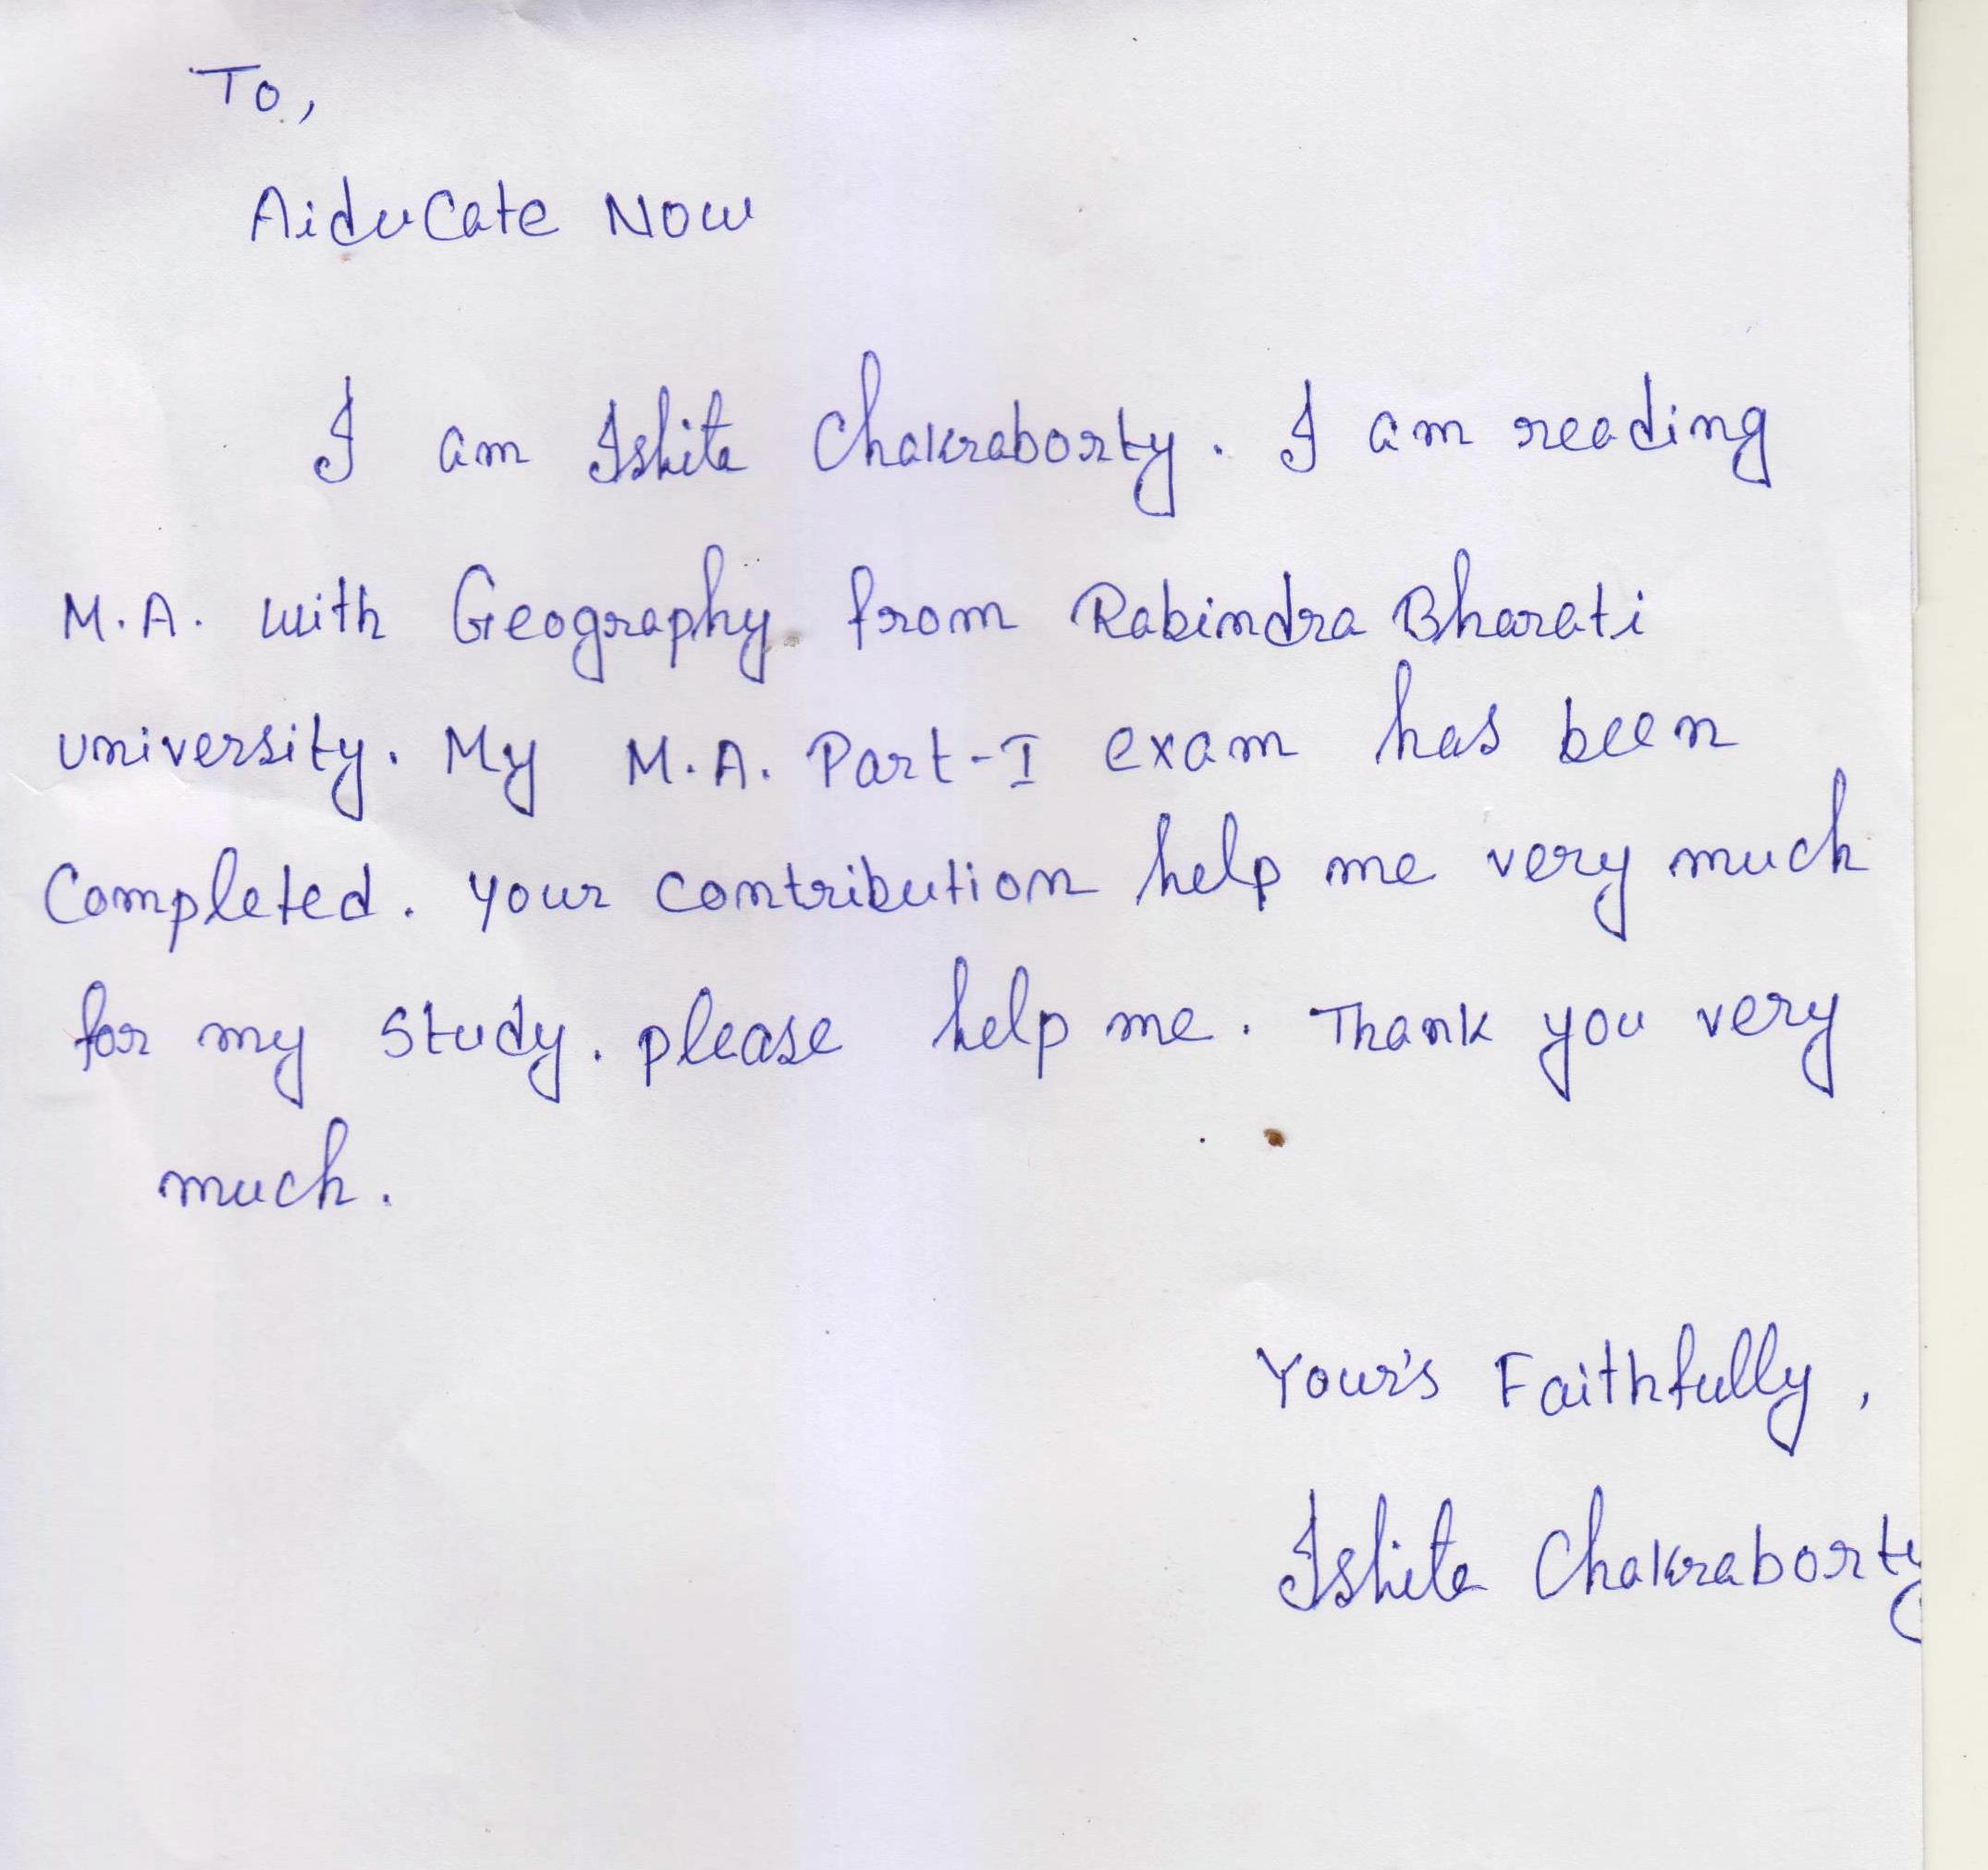 To,
Aiducate Now
I am Ishita Chakraborty. I am reading
M.A. with Geography from Rabindra Bharati
university. My M.A. Part-I exam has been
Completed. your contribution help me very much
for my study. please help me. Thank you very
much.
Your's Faithfully,
Ishita Chakraborty